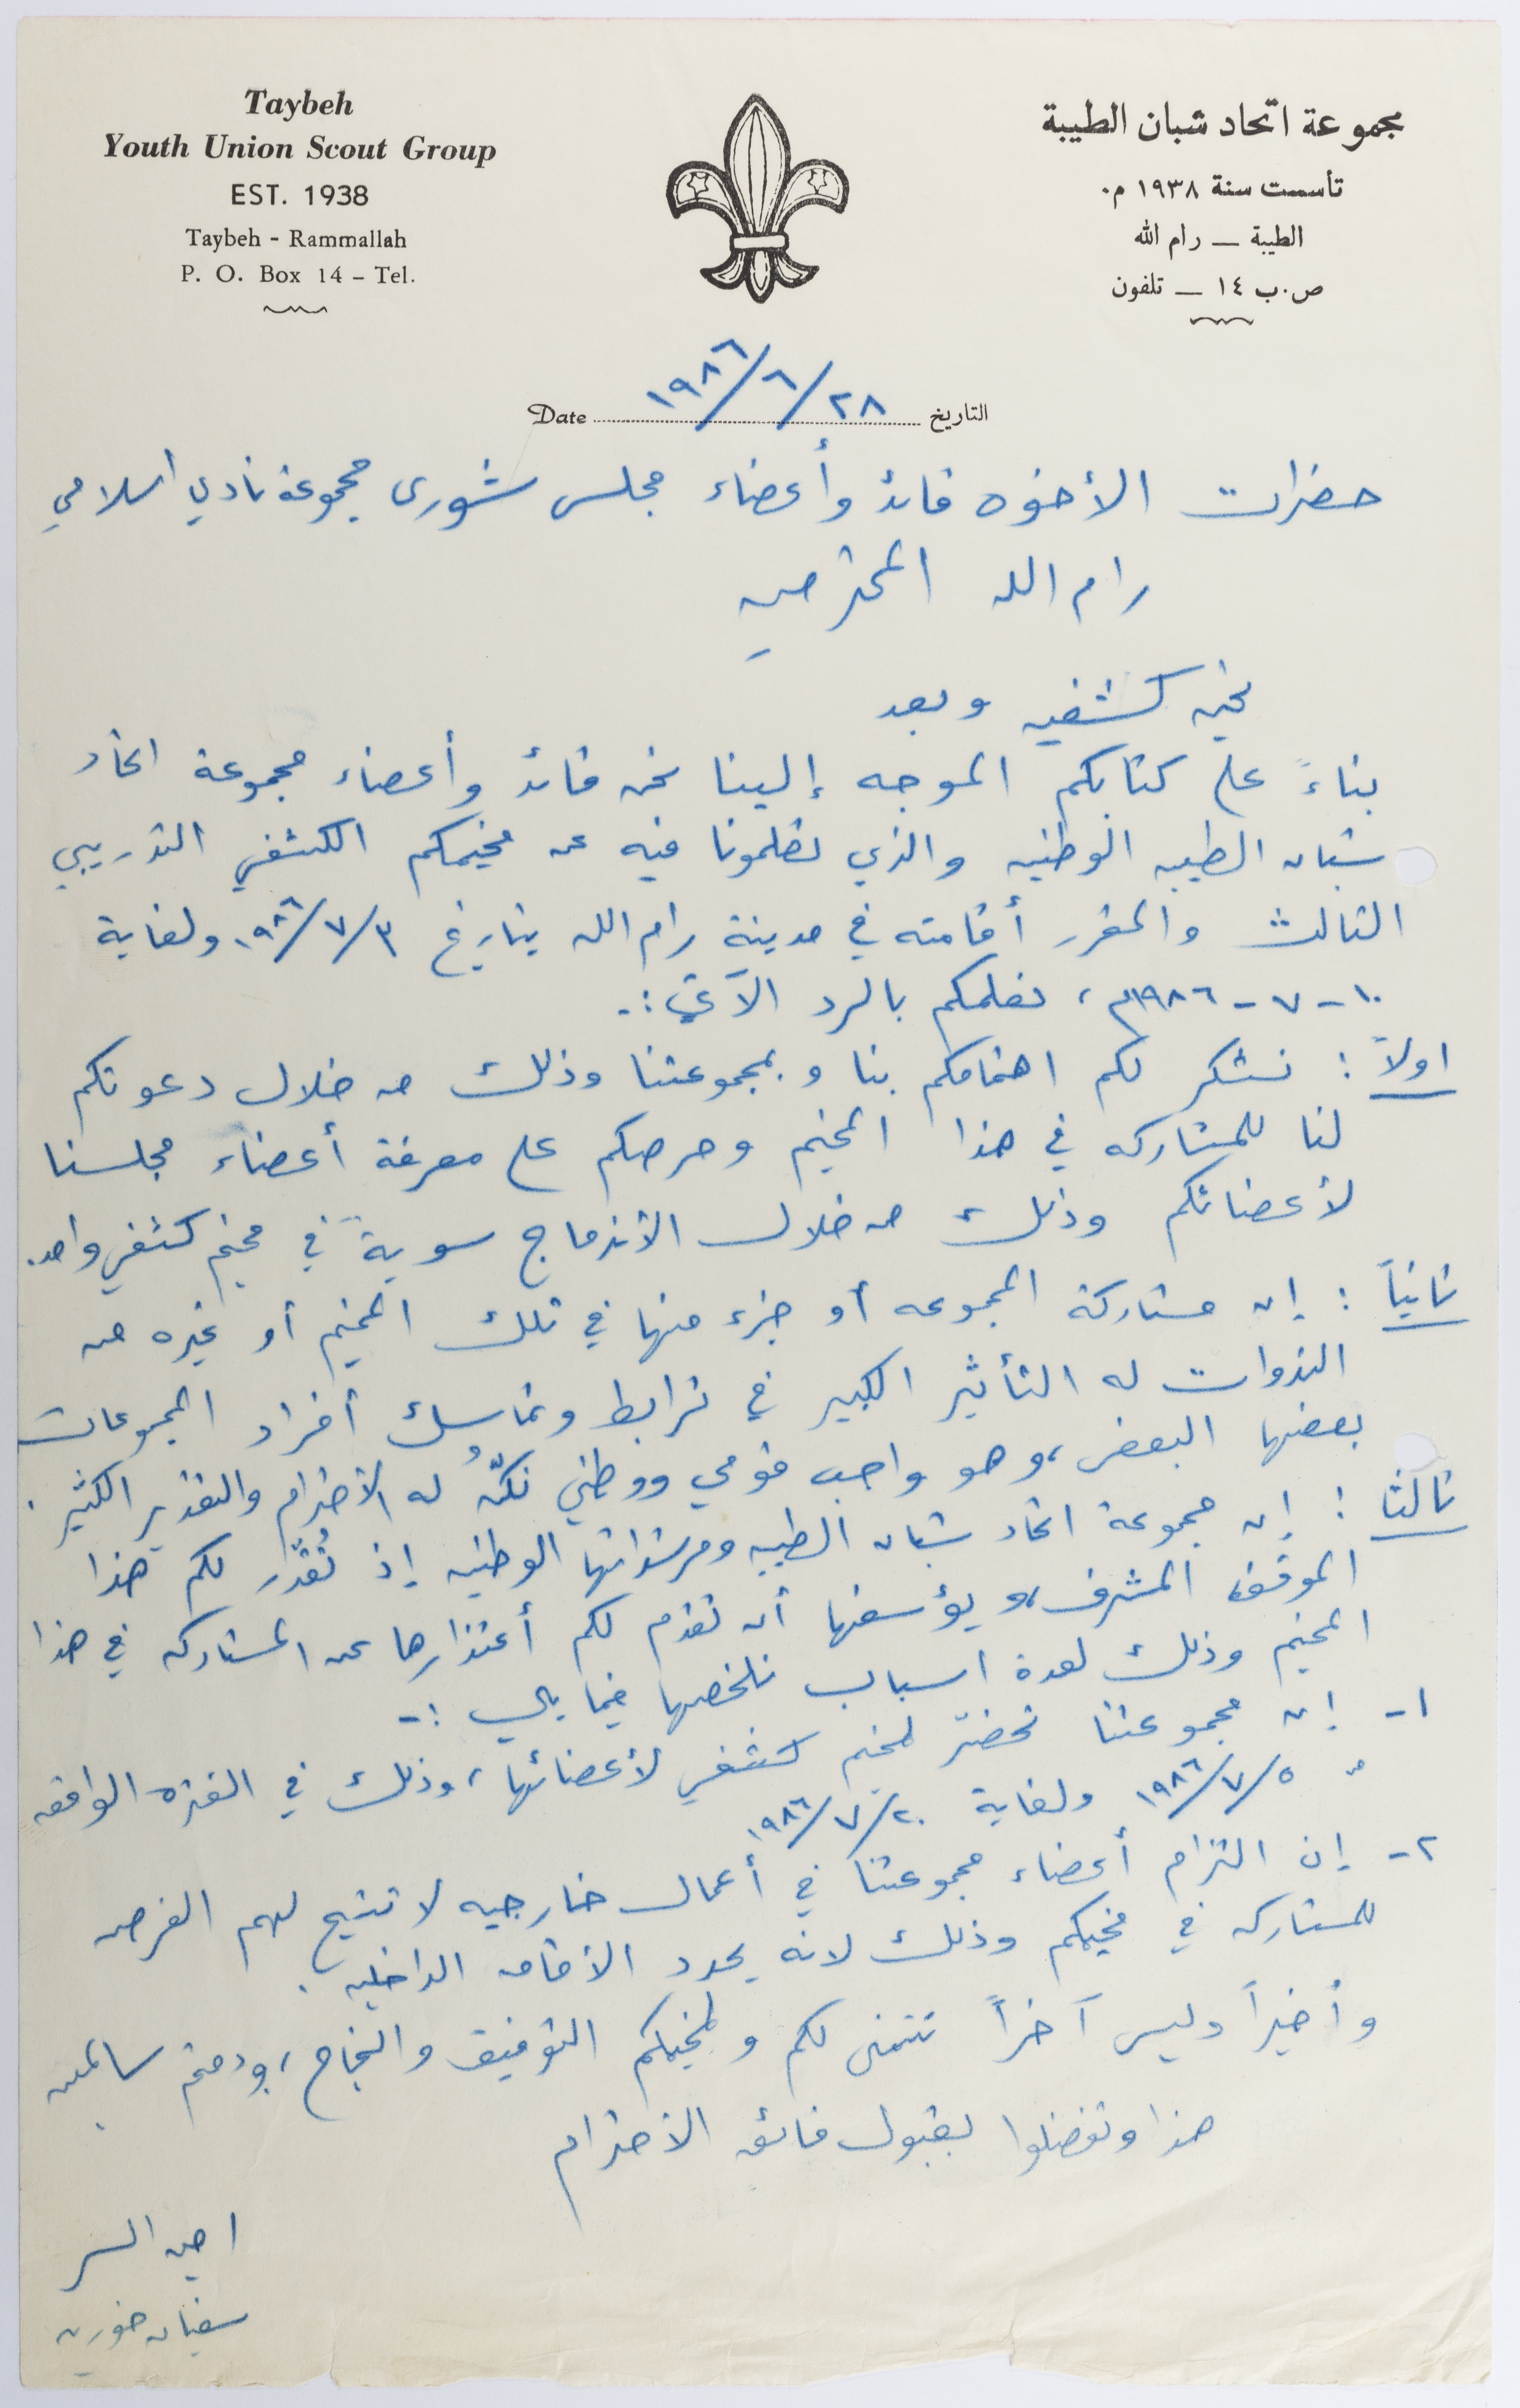 Taybeh
Youth Union Scout Group
EST. 1938
Taybeh - Rammallah
P. O. Box 14 - Tel.
مجموعة اتحاد شبان الطيبة
تأسست سنة ١٩٣٨ م.
الطيبة — رام الله
ص.ب ١٤ — تلفون
Date ١٩٨٦/٦/٢٨ التاريخ
حضرات الأخوه قائد وأعضاء مجلس شورى مجموعة نادي اسلامي
رام الله المحترمين
تحيه كشفيه وبعد
بناءً على كتابكم الموجه إلينا نحن قائد وأعضاء مجموعة اتحاد
شبان الطيبه الوطنيه والذي تعلمونا فيه عن مخيمكم الكشفي التدريبي
الثالث والمقرر أقامته في مدينة رام الله بتاريخ ١٩٨٦/٧/٣ ولغاية
١٠-٧-١٩٨٦م، نعلمكم بالرد الآتي :-
اولاً : نشكر لكم اهتمامكم بنا وبمجموعتنا وذلك من خلال دعوتكم
لنا للمشاركه في هذا المخيم وحرصكم على معرفة أعضاء مجلسنا
لأعضائكم وذلك من خلال الأندماج سويةً في مخيم كشفي واحد.
ثانياً : إن مشاركة المجموعه أو جزء منها في تلك المخيم أو غيره من
الندوات له التأثير الكبير في ترابط وتماسك أفراد المجموعات
بعضها البعض، وهو واجب قومي ووطني نكنّ له الأحترام والتقدير الكثير .
ثالثا : إن مجموعة اتحاد شبان الطيبه ومرشداتها الوطنيه إذ تُقدّر لكم هذا
الموقف المشرف، ويؤسفها أن تقدم لكم أعتذارها عن المشاركه في هذا
المخيم وذلك لعدة اسباب نلخصها فيما يلي :-
١- إن مجموعتنا تحضّر لمخيم كشفي لأعضائها، وذلك في الفتره الواقعه
من ١٩٨٦/٧/٥ ولغاية ١٩٨٦/٧/٢٠
٢- إن التزام أعضاء مجموعتنا في أعمال خارجيه لا تتيح لهم الفرصه
للمشاركه في مخيمكم وذلك لانه يحدد الأقامه الداخليه .
وأخيراً وليس آخراً نتمنى لكم ولمخيمكم التوفيق والنجاح، ودمتم سالمين
هذا وتفضلوا بقبول فائق الأحترام
امين السر
سفيان خوريه